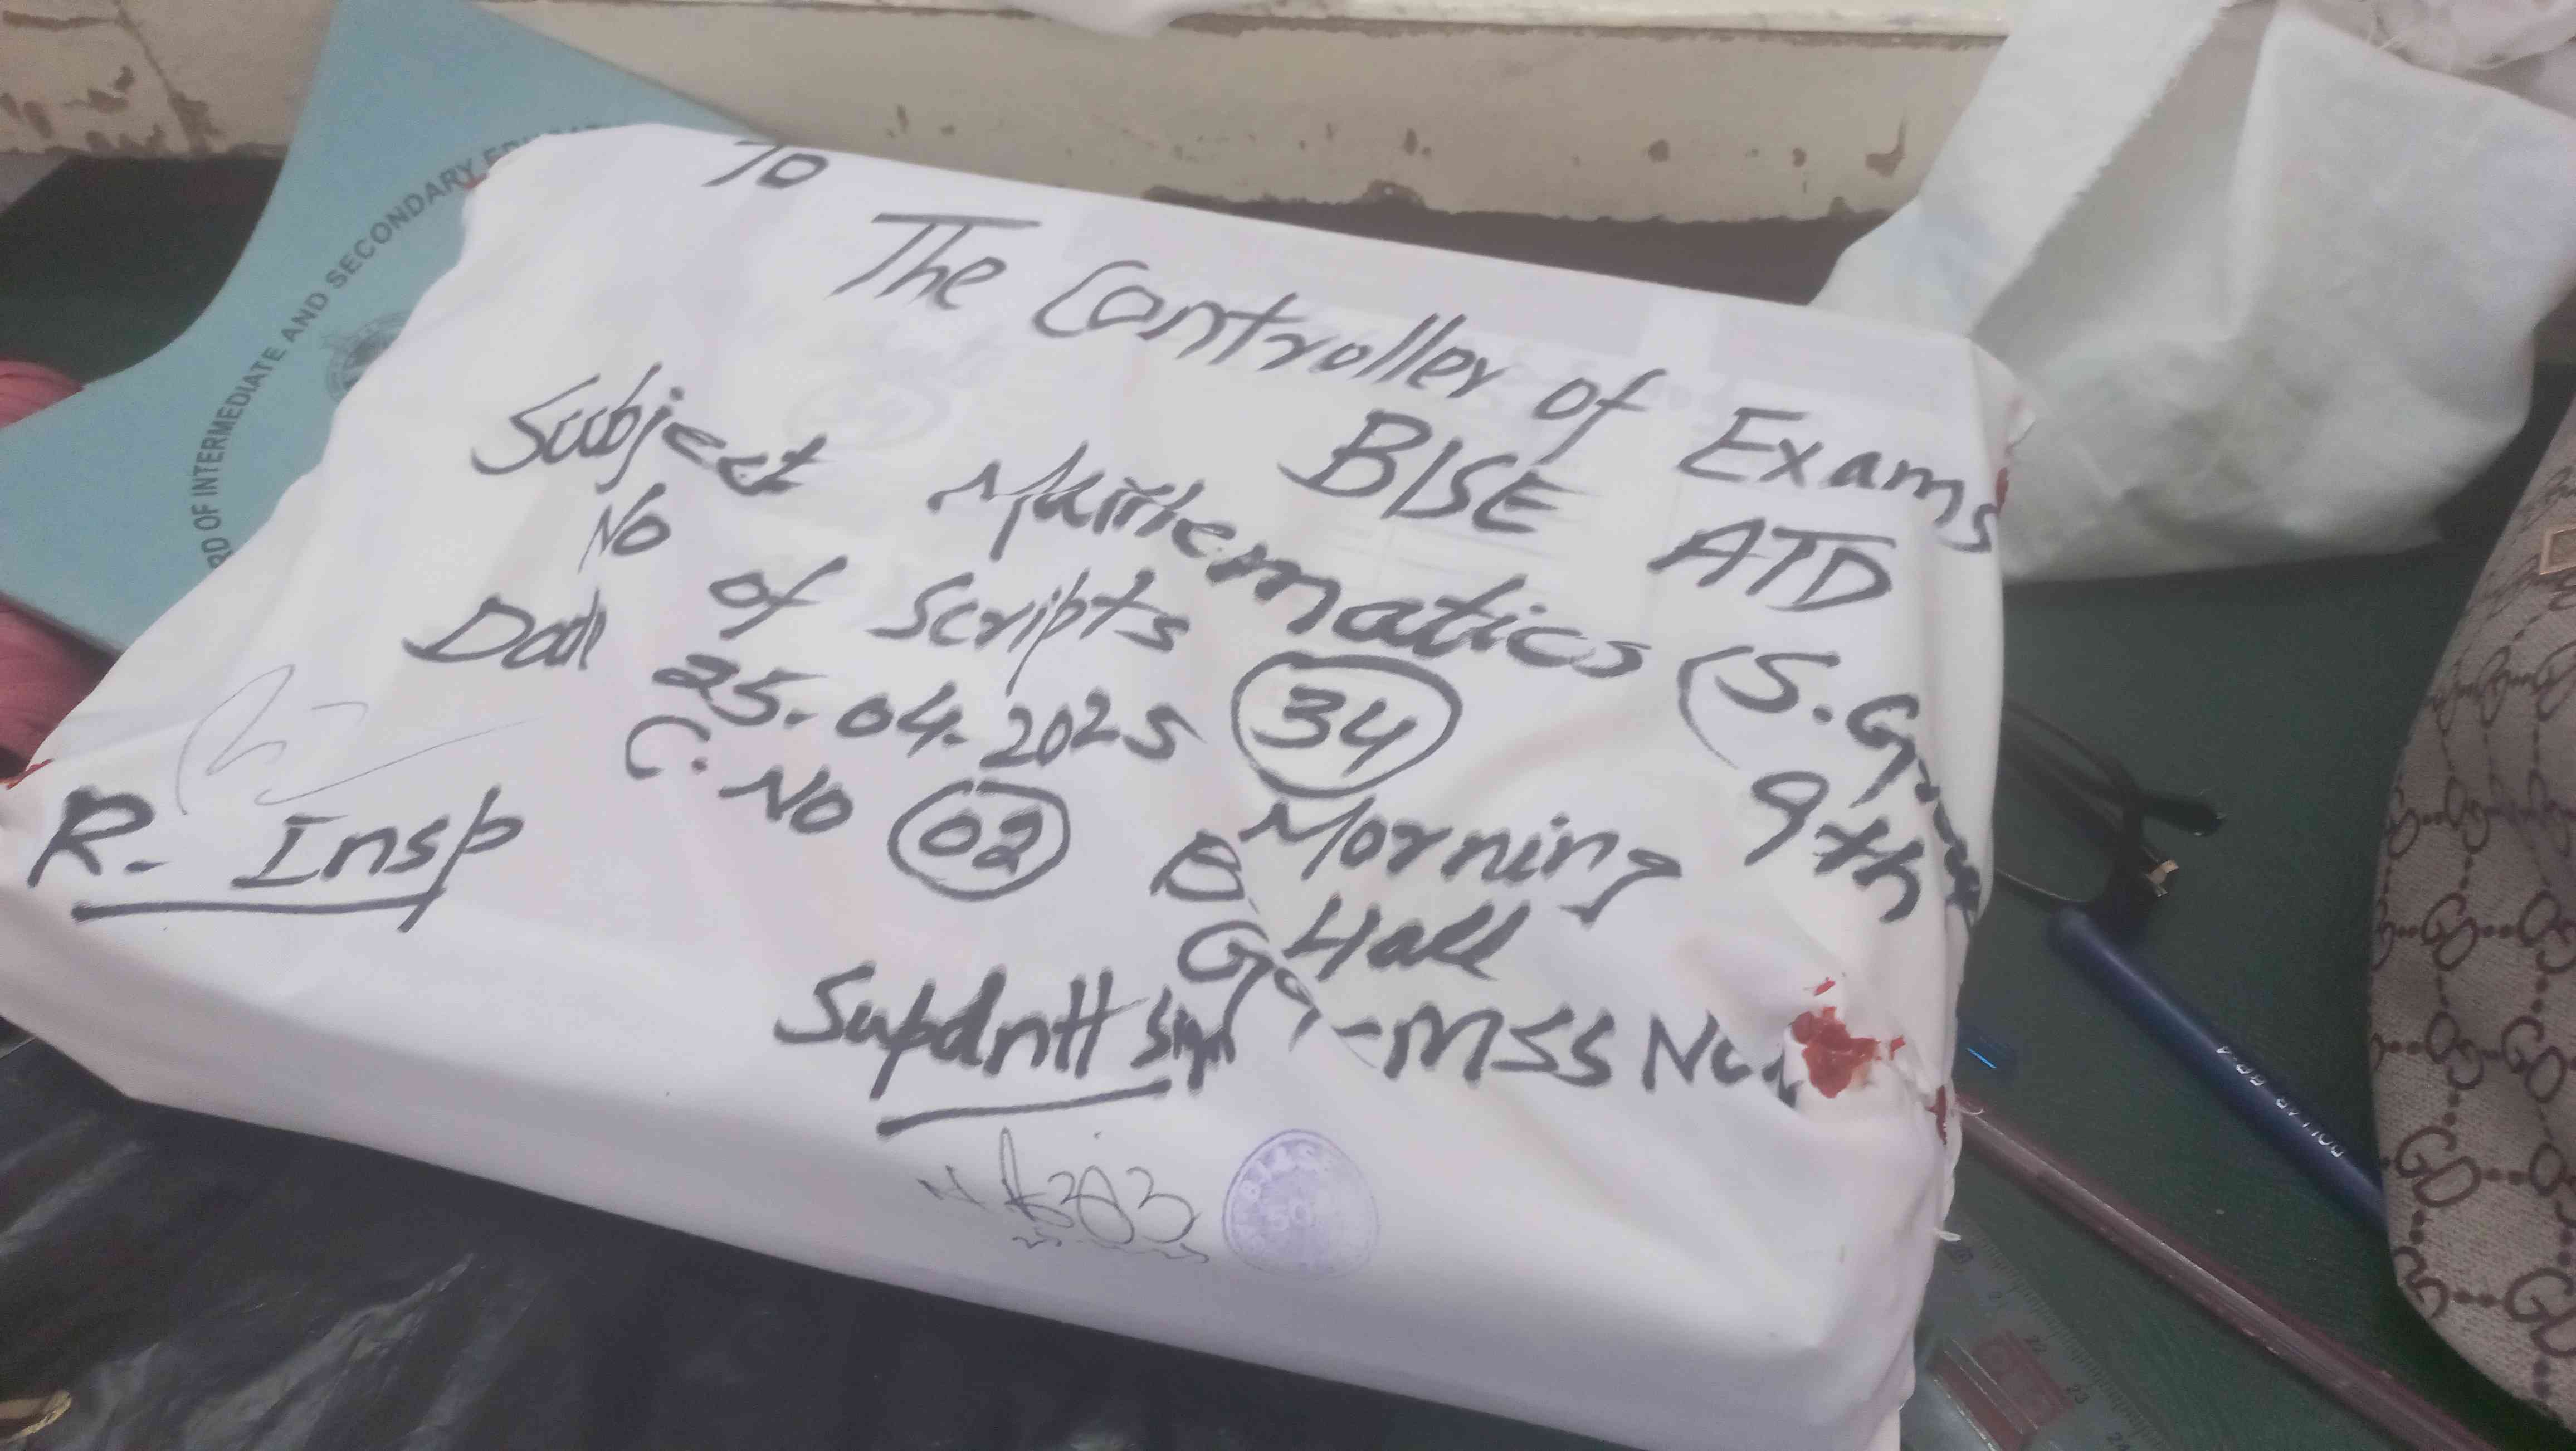 To
The Controller of Exams
BISE ATD
Subject Mathematics (S.G
9th
No of Scripts 34
Date 25.04.2025 Morning
C. No 02 B. Hall
R. Insp
Supdntt Sign
MSS
RD OF INTERMEDIATE AND SECONDARY EDU
DOLLAR
22
23
24